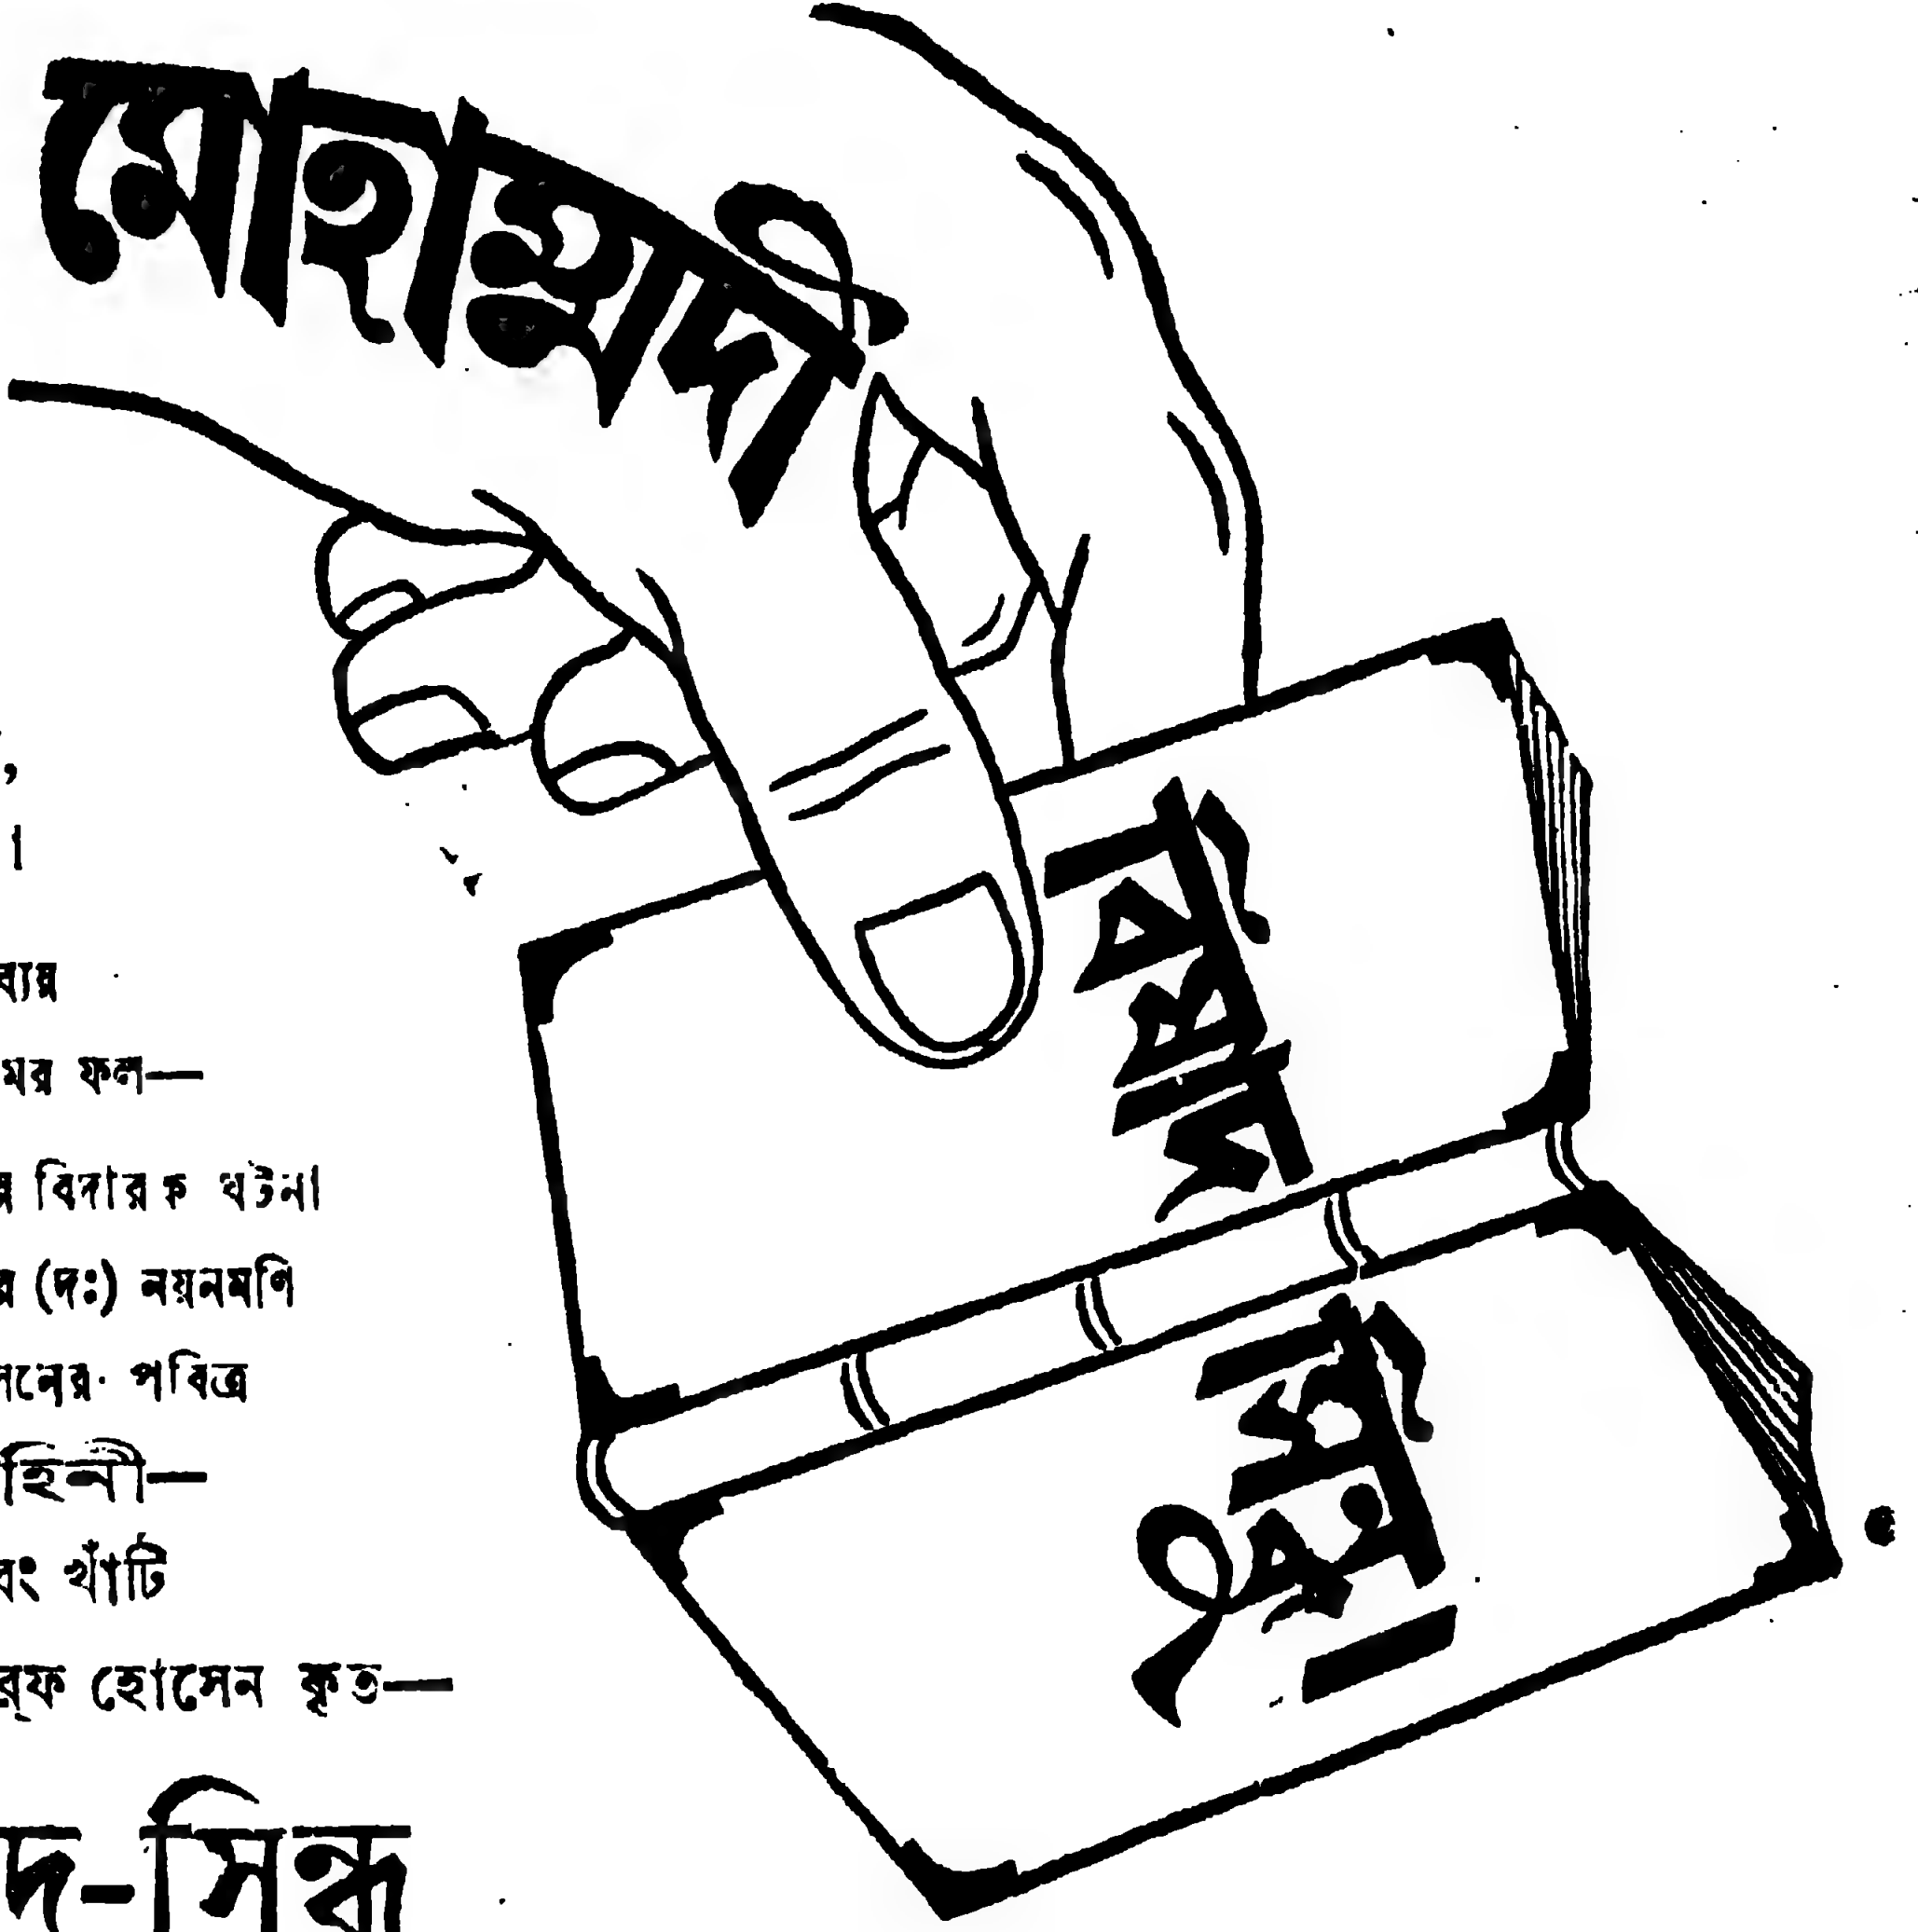 মোহাম্মদী
বিষাদ
সিন্ধু—
ব্যয়
মের ফল—
বিদারক ঘটনা
(দঃ) নয়নমণি
নের পবিত্র
হিনী—
বং খাঁটি
রফ হোসেন কৃত—
দ-সিন্ধু